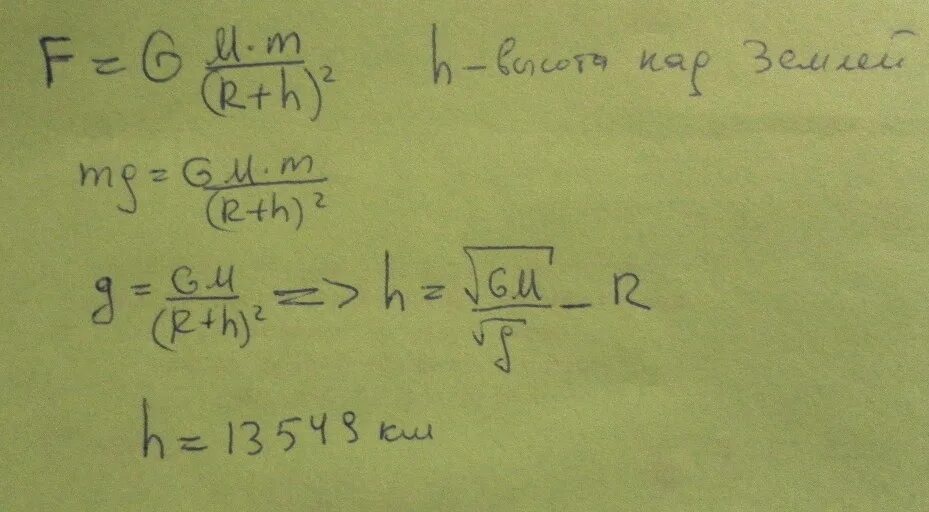 F = G M·m/(R+h)² h – высота над Землей
mg = G M·m/(R+h)²
g = GM/(R+h)² => h = √GM/√g – R
h = 13549 км